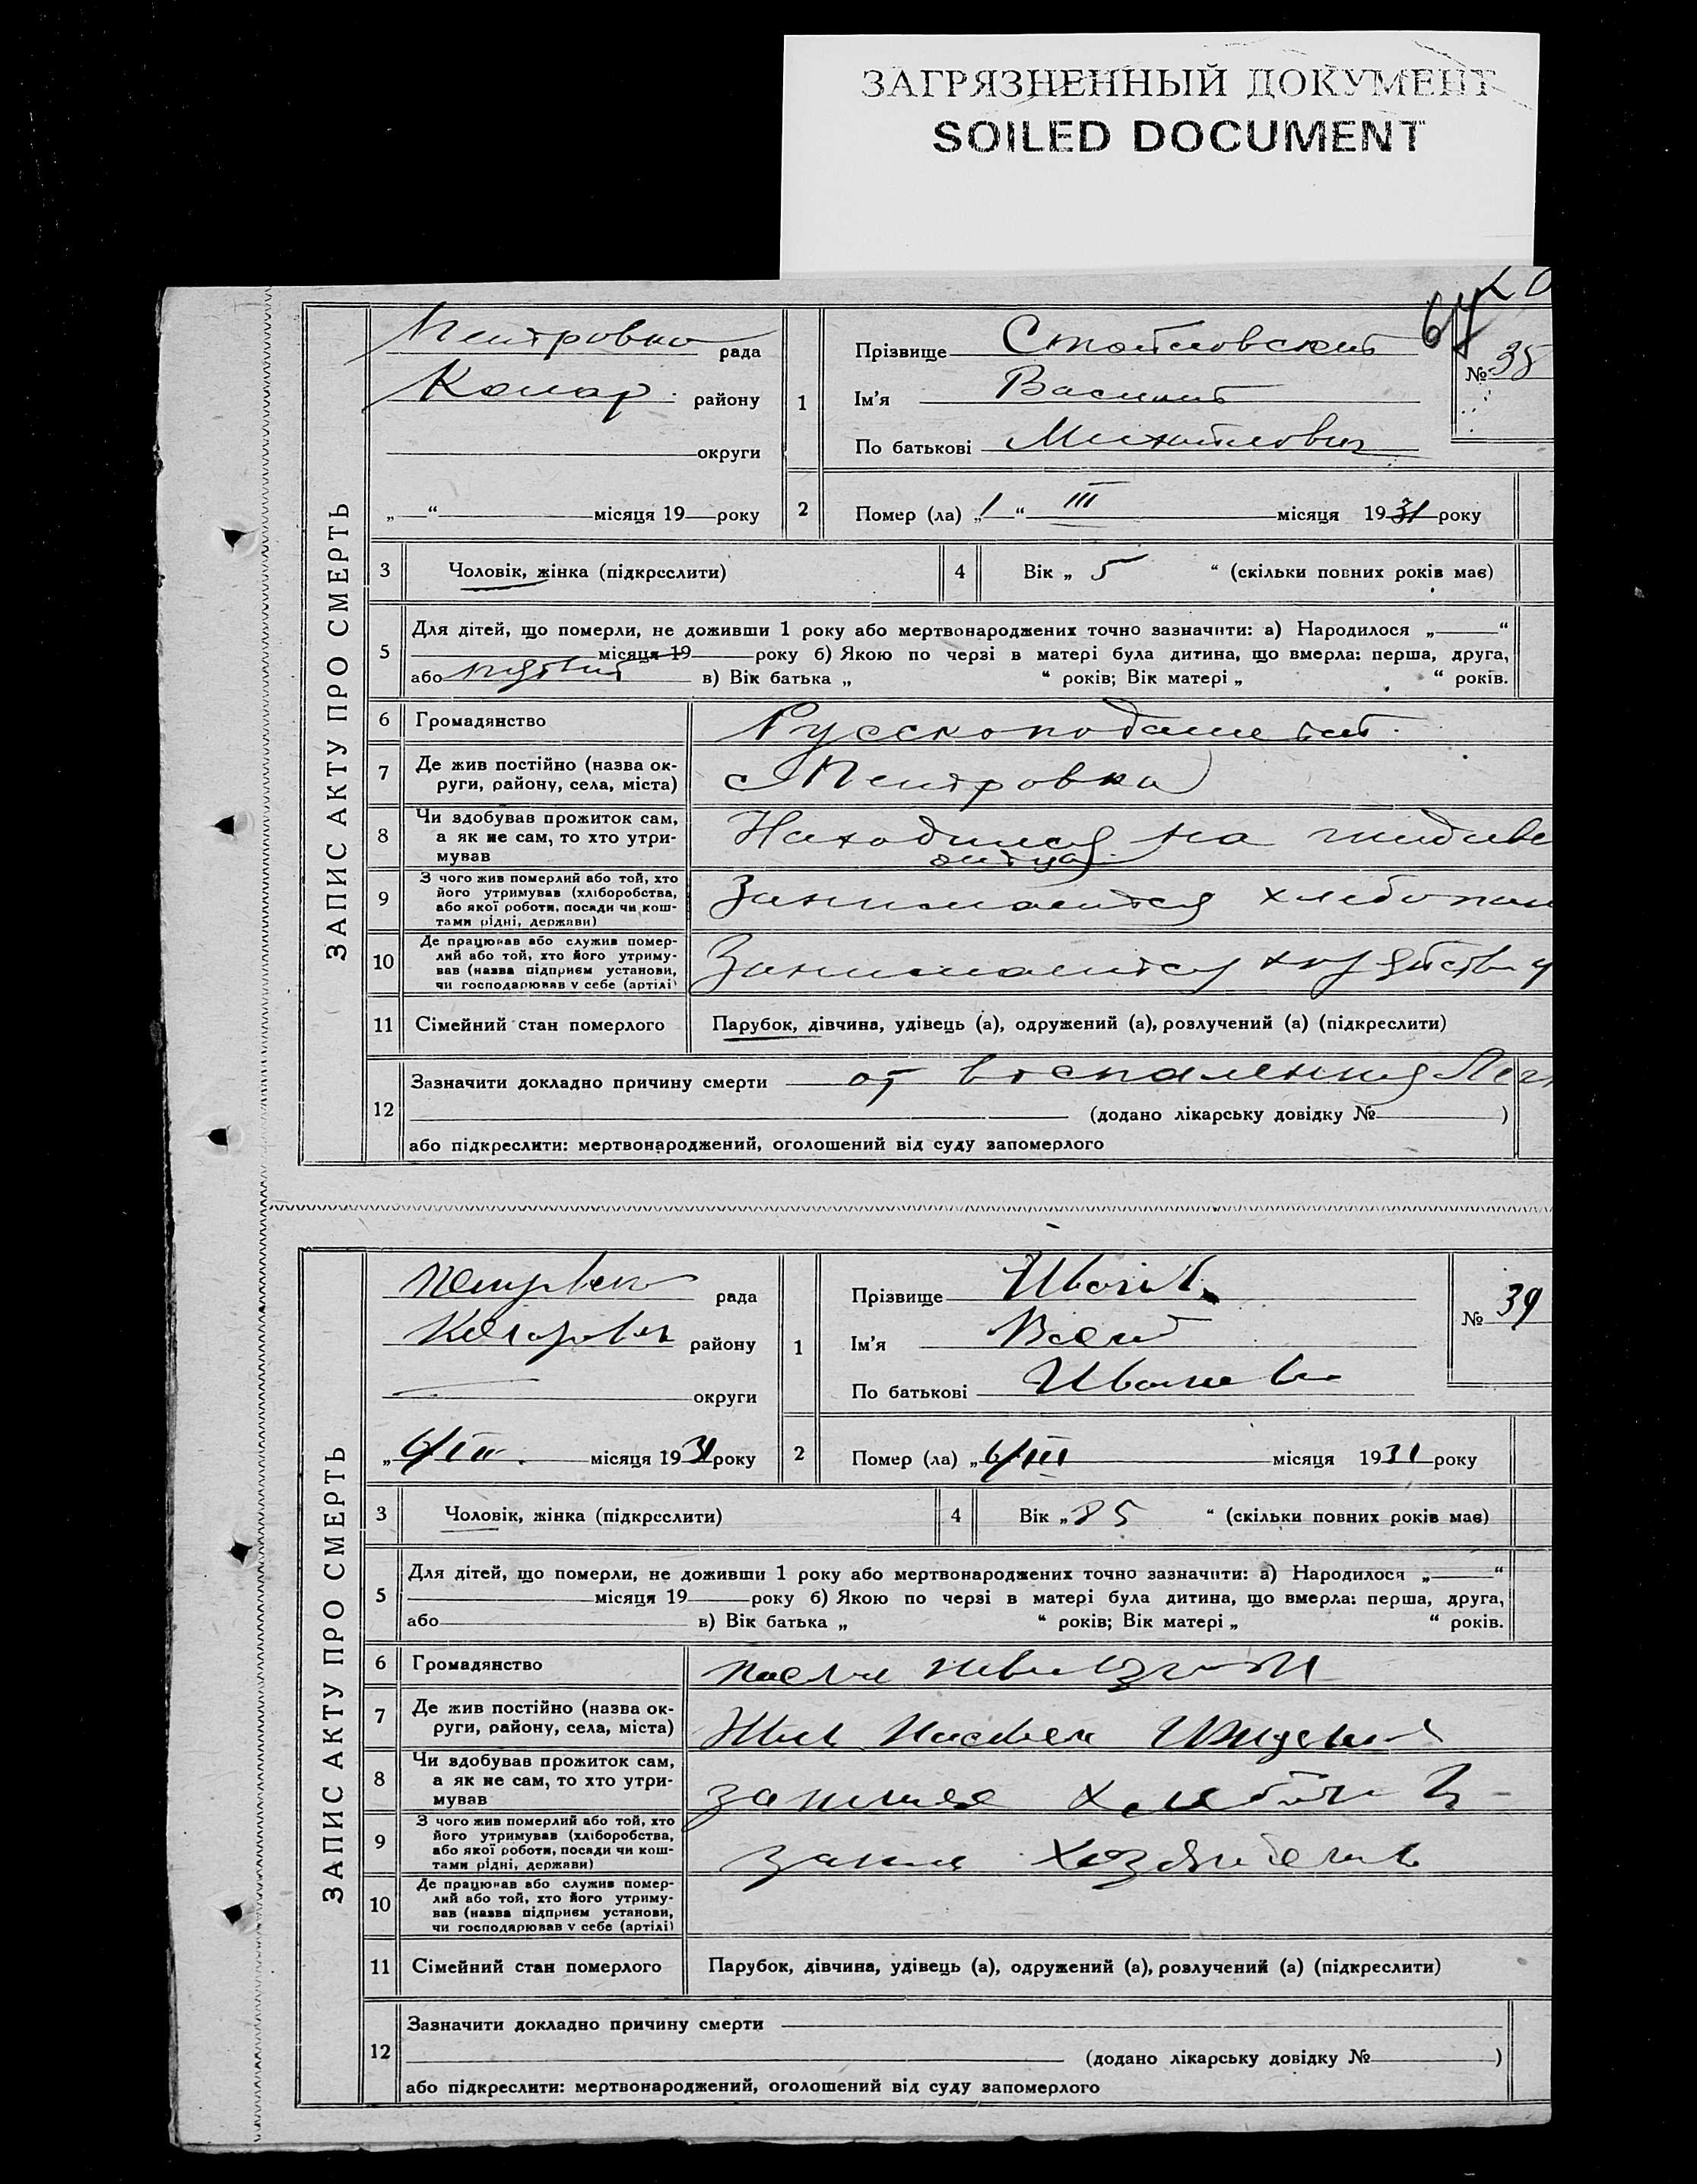 ЗАГРЯЗНЕННЫЙ ДОКУМЕНТ
SOILED DOCUMENT
64
ЗАПИС АКТУ ПРО СМЕРТЬ
Петровка рада
Комар. району
округи
„ “ місяця 19 року
1
Прізвище Стойловский
Ім'я Василий
По батькові Михайлович
№ 38
2
Помер (ла) „1“ III місяця 1931 року
3 Чоловік, жінка (підкреслити)
4 Вік „ 5 “ (скільки повних років має)
5
Для дітей, що померли, не доживши 1 року або мертвонароджених точно зазначити: а) Народилося „ “
місяця 19 року б) Якою по черзі в матері була дитина, що вмерла: перша, друга,
або в) Вік батька „ “ років; Вік матері „ “ років.
6 Громадянство Русскоподанный
7 Де жив постійно (назва ок-
руги, району, села, міста) с Петровка
8 Чи здобував прожиток сам,
а як не сам, то хто утри-
мував Находился на иждиве
отца
9 З чого жив померлий або той, хто
його утримував (хліборобства,
або якої роботи, посади чи кош-
тами рідні, держави) Занимается хлебопаш
10 Де працював або служив помер-
лий або той, хто його утриму-
вав (назва підприєм установи,
чи господарював у себе (артілі) Занимается
11 Сімейний стан померлого Парубок, дівчина, удівець (а), одружений (а), розлучений (а) (підкреслити)
12
Зазначити докладно причину смерти от воспаления Лег
(додано лікарську довідку № )
або підкреслити: мертвонароджений, оголошений від суду запомерлого
ЗАПИС АКТУ ПРО СМЕРТЬ
рада
району
округи
„6/III. місяця 1931 року
1
Прізвище
Ім'я
По батькові
№ 39
2
Помер (ла) „6/III місяця 1931 року
3 Чоловік, жінка (підкреслити)
4 Вік „ 85 “ (скільки повних років має)
5
Для дітей, що померли, не доживши 1 року або мертвонароджених точно зазначити: а) Народилося „ “
місяця 19 року б) Якою по черзі в матері була дитина, що вмерла: перша, друга,
або в) Вік батька „ “ років; Вік матері „ “ років.
6 Громадянство
7 Де жив постійно (назва ок-
руги, району, села, міста)
8 Чи здобував прожиток сам,
а як не сам, то хто утри-
мував
9 З чого жив померлий або той, хто
його утримував (хліборобства,
або якої роботи, посади чи кош-
тами рідні, держави)
10 Де працював або служив помер-
лий або той, хто його утриму-
вав (назва підприєм установи,
чи господарював у себе (артілі)
11 Сімейний стан померлого Парубок, дівчина, удівець (а), одружений (а), розлучений (а) (підкреслити)
12
Зазначити докладно причину смерти
(додано лікарську довідку № )
або підкреслити: мертвонароджений, оголошений від суду запомерлого